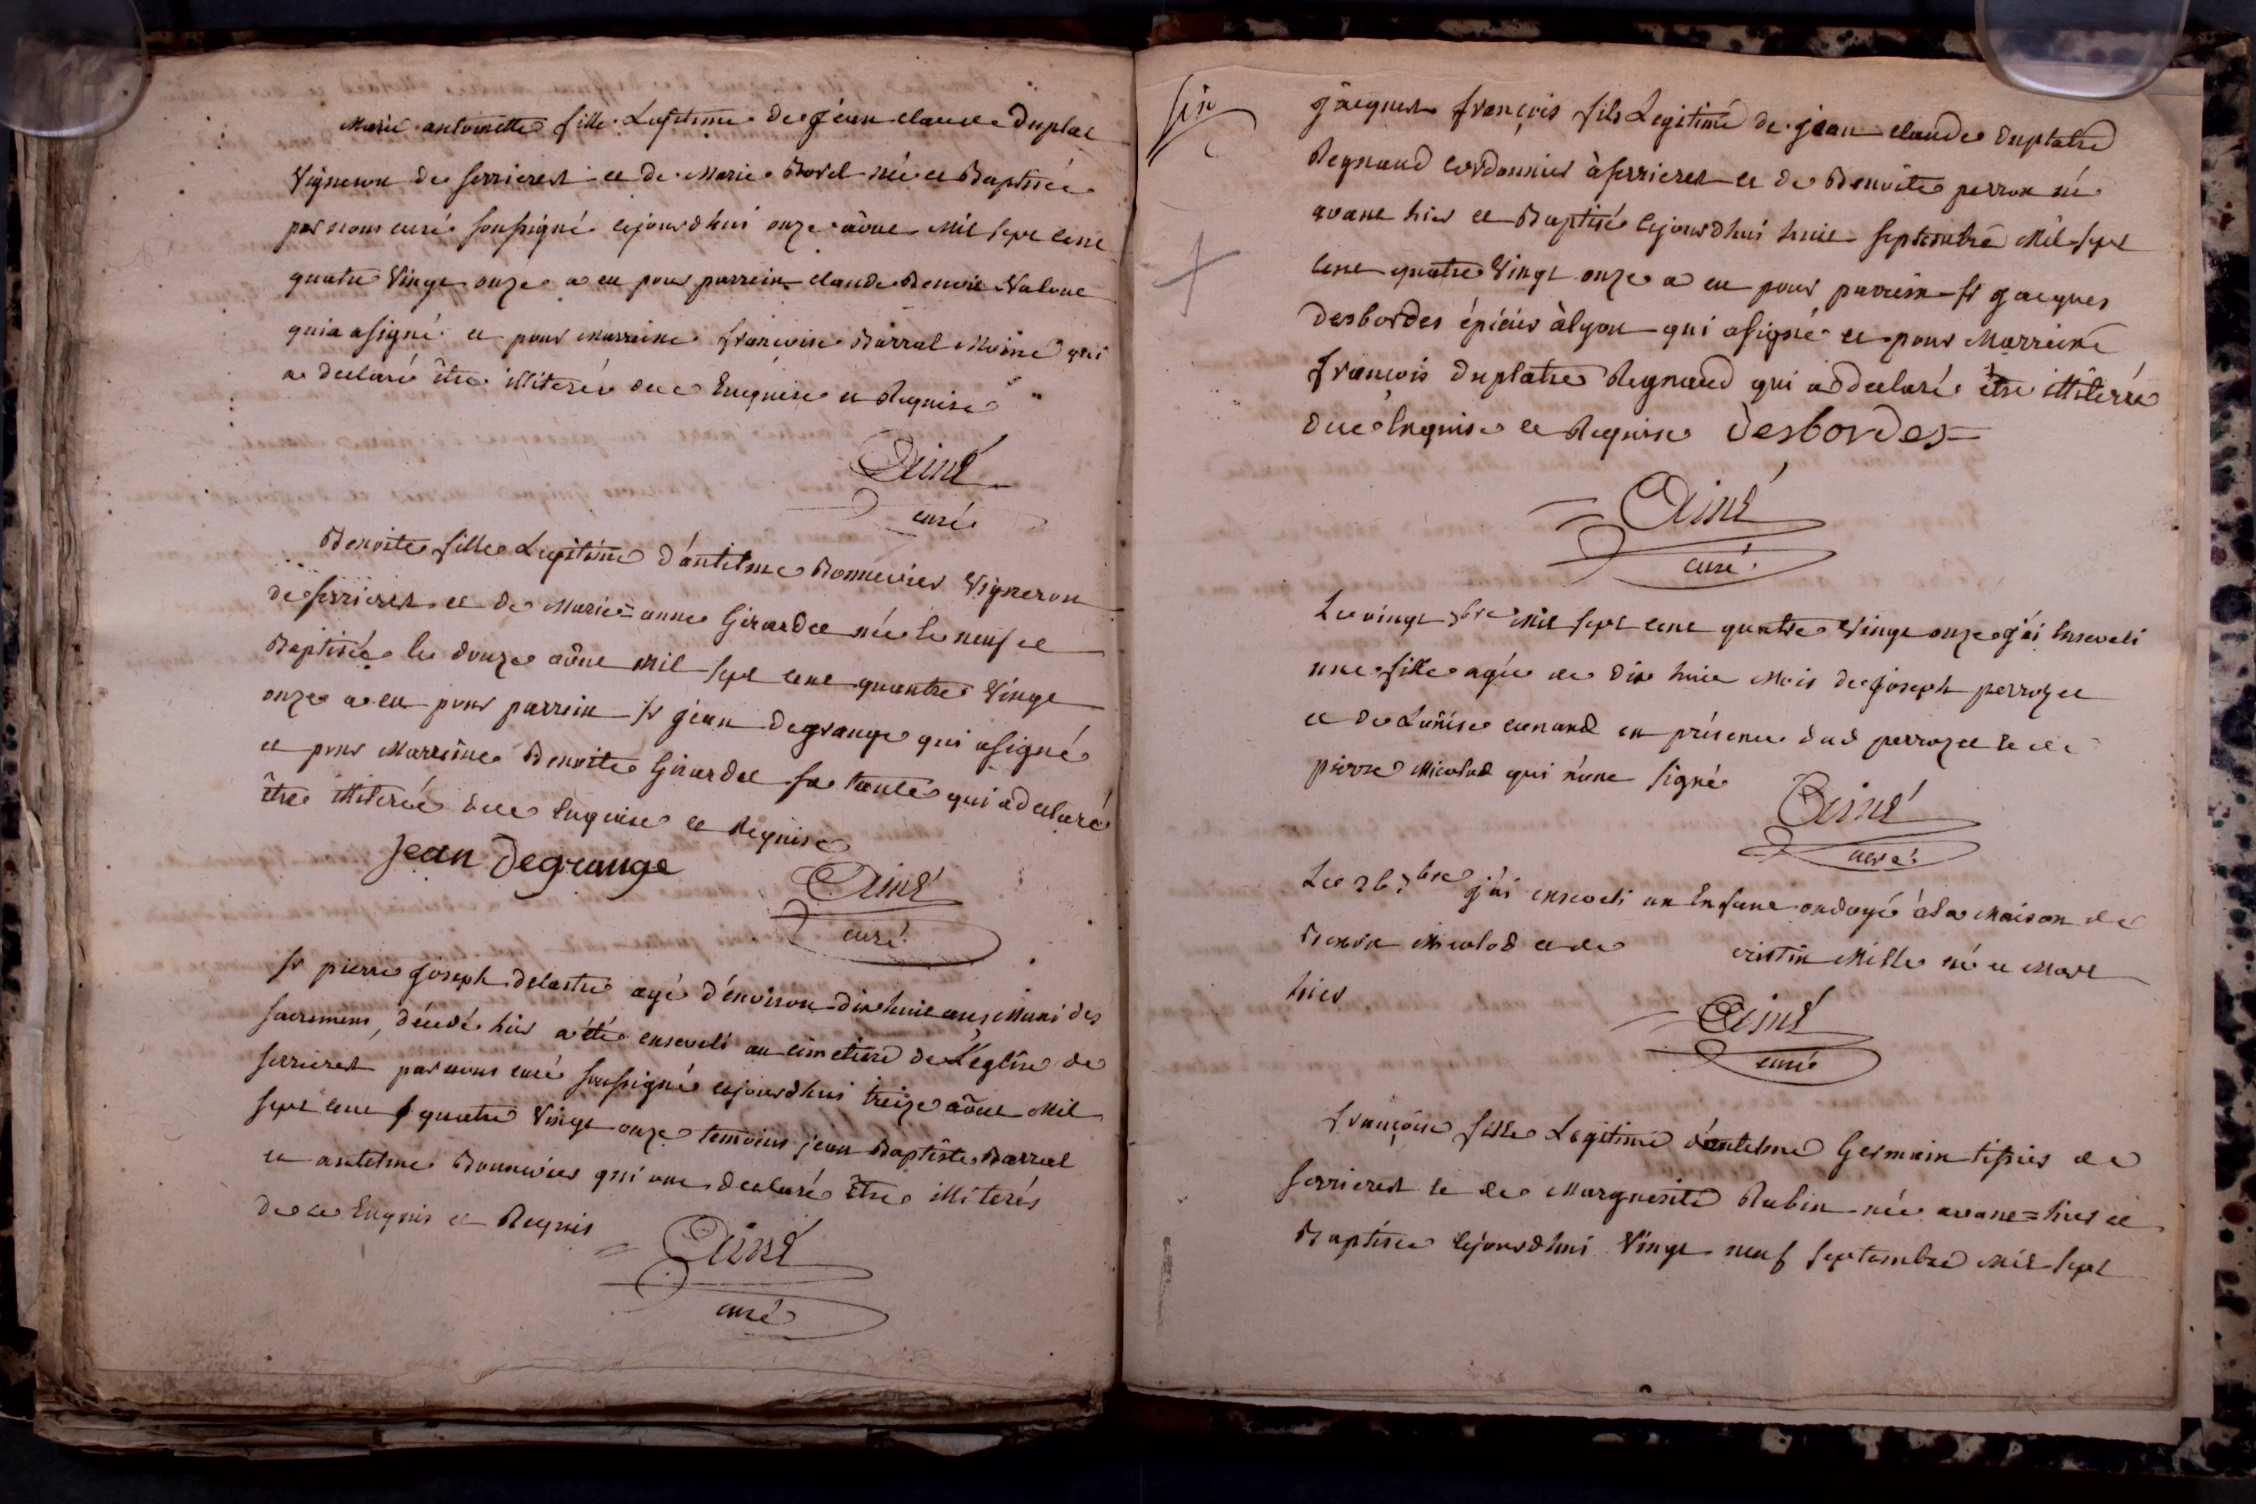 Marie antoinette fille Legitime de jean claude Duplat
Vigneron de serrieres et de Marie Borel née et Baptisée
par nous curé soussigné cejourdhui onze aout Mil sept cent
quatre Vingt onze a eu pour parrein claude Benoit
qui a signé et pour marreine francoise Barral Moine qui
a declaré être illiterée de ce Enquise et Requise
Ainé
curé
Benoite fille Legitime d'antelme Bonnevier Vigneron
de serrieres et de Marie=anne Girardet née le neuf et
Baptisée le douze aôut Mil sept cent quantre Vingt
onze a eu pour parrein sr jean degrange qui a signé
et pour Marreine Benoite Girardet sa tante qui a declaré
être illiterée de ce Enquise et Requise
jean Degrange
Ainé
curé
sr pierre joseph delastre agé d'environ dix huit ans, Muni des
sacremens, décédé hier a été enseveli au cimetiere de L'église de
serrieres par nous curé soussigné cejourdhui treize aôut Mil
sept cent quatre Vingt onze temoins jean Baptiste Barral
et antelme Bonnevier qui ont declaré être illiterés
de ce Enquis et Requis
Ainé
curé
jacques françois fils Legitime de jean claude duplatre
Regnaud cordonnier à serrieres et de Benoite perron né
avant hier et Baptisé cejourdhui huit septembre Mil sept
cent quatre Vingt onze a eu pour parrein sr jacques
desbordes épicier à lyon qui a signé et pour Marreine
francois duplatre Regnaud qui a declaré être illiterée
de ce Enquise et Requise desbordes
Ainé
curé
Le vingt 7bre Mil sept cent quatre Vingt onze j'ai Enseveli
une fille agée de dix huit Mois de joseph perrozet
et de Louise en présence dud perrozet et de
pierre Micolod qui n'ont signé
Ainé
curé
Le 26 7bre j'ai enseveli un Enfant ondoyé à la Maison de
Benoit Micolod et de cristin Mille né et Mort
hier
Ainé
curé
françoise fille Legitime d'antelme Germain tissier de
serrieres et de Marguerite Rubin née avant=hier et
Baptisée cejourdhui Vingt neuf septembre Mil sept